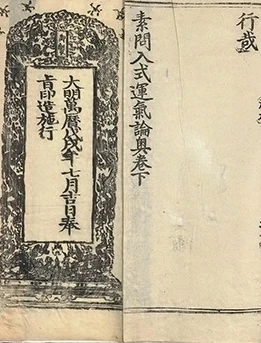 行
素問入式運氣論奧卷下
大明萬曆戊戌年七月吉日奉
旨印造施行